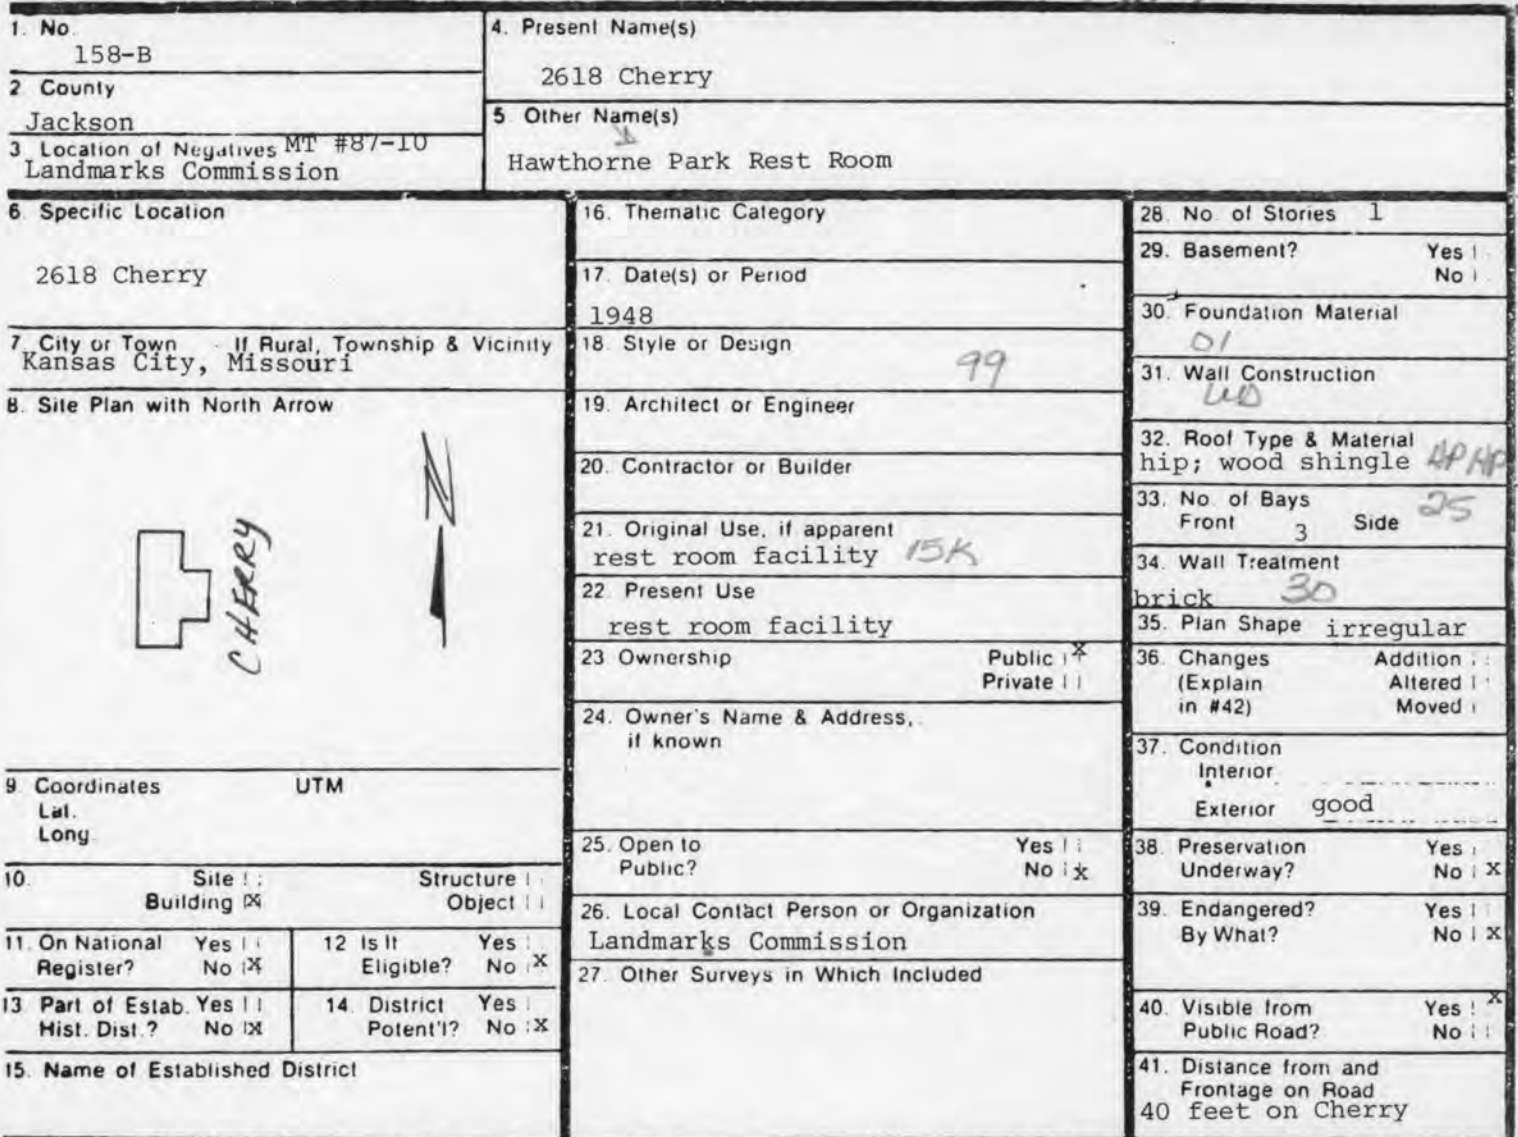 1. No.
158-B
2 County
Jackson
3 Location of Negatives MT #87-10
Landmarks Commission
4. Present Name(s)
2618 Cherry
5 Other Name(s)
Hawthorne Park Rest Room
6. Specific Location
2618 Cherry
7. City or Town If Rural, Township & Vicinity
Kansas City, Missouri
8. Site Plan with North Arrow
N
CHERRY
9. Coordinates UTM
Lat.
Long.
10. Site Structure
Building X Object
11. On National Yes
Register? No X
12 Is It Yes
Eligible? No X
13 Part of Estab. Yes
Hist. Dist.? No X
14. District Yes
Potent'l? No X
15. Name of Established District
16. Thematic Category
17. Date(s) or Period
1948
18. Style or Design
99
19. Architect or Engineer
20. Contractor or Builder
21. Original Use, if apparent
rest room facility 15K
22. Present Use
rest room facility
23 Ownership Public X
Private
24. Owner's Name & Address,
if known
25. Open to Yes
Public? No X
26. Local Contact Person or Organization
Landmarks Commission
27. Other Surveys in Which Included
28. No. of Stories 1
29. Basement? Yes
No
30. Foundation Material
01
31. Wall Construction
32. Roof Type & Material
hip; wood shingle HP
33. No. of Bays 25
Front 3 Side
34. Wall Treatment
brick 30
35. Plan Shape irregular
36. Changes Addition
(Explain Altered
in #42) Moved
37. Condition
Interior
Exterior good
38. Preservation Yes
Underway? No X
39. Endangered? Yes
By What? No X
40. Visible from Yes X
Public Road? No
41. Distance from and
Frontage on Road
40 feet on Cherry